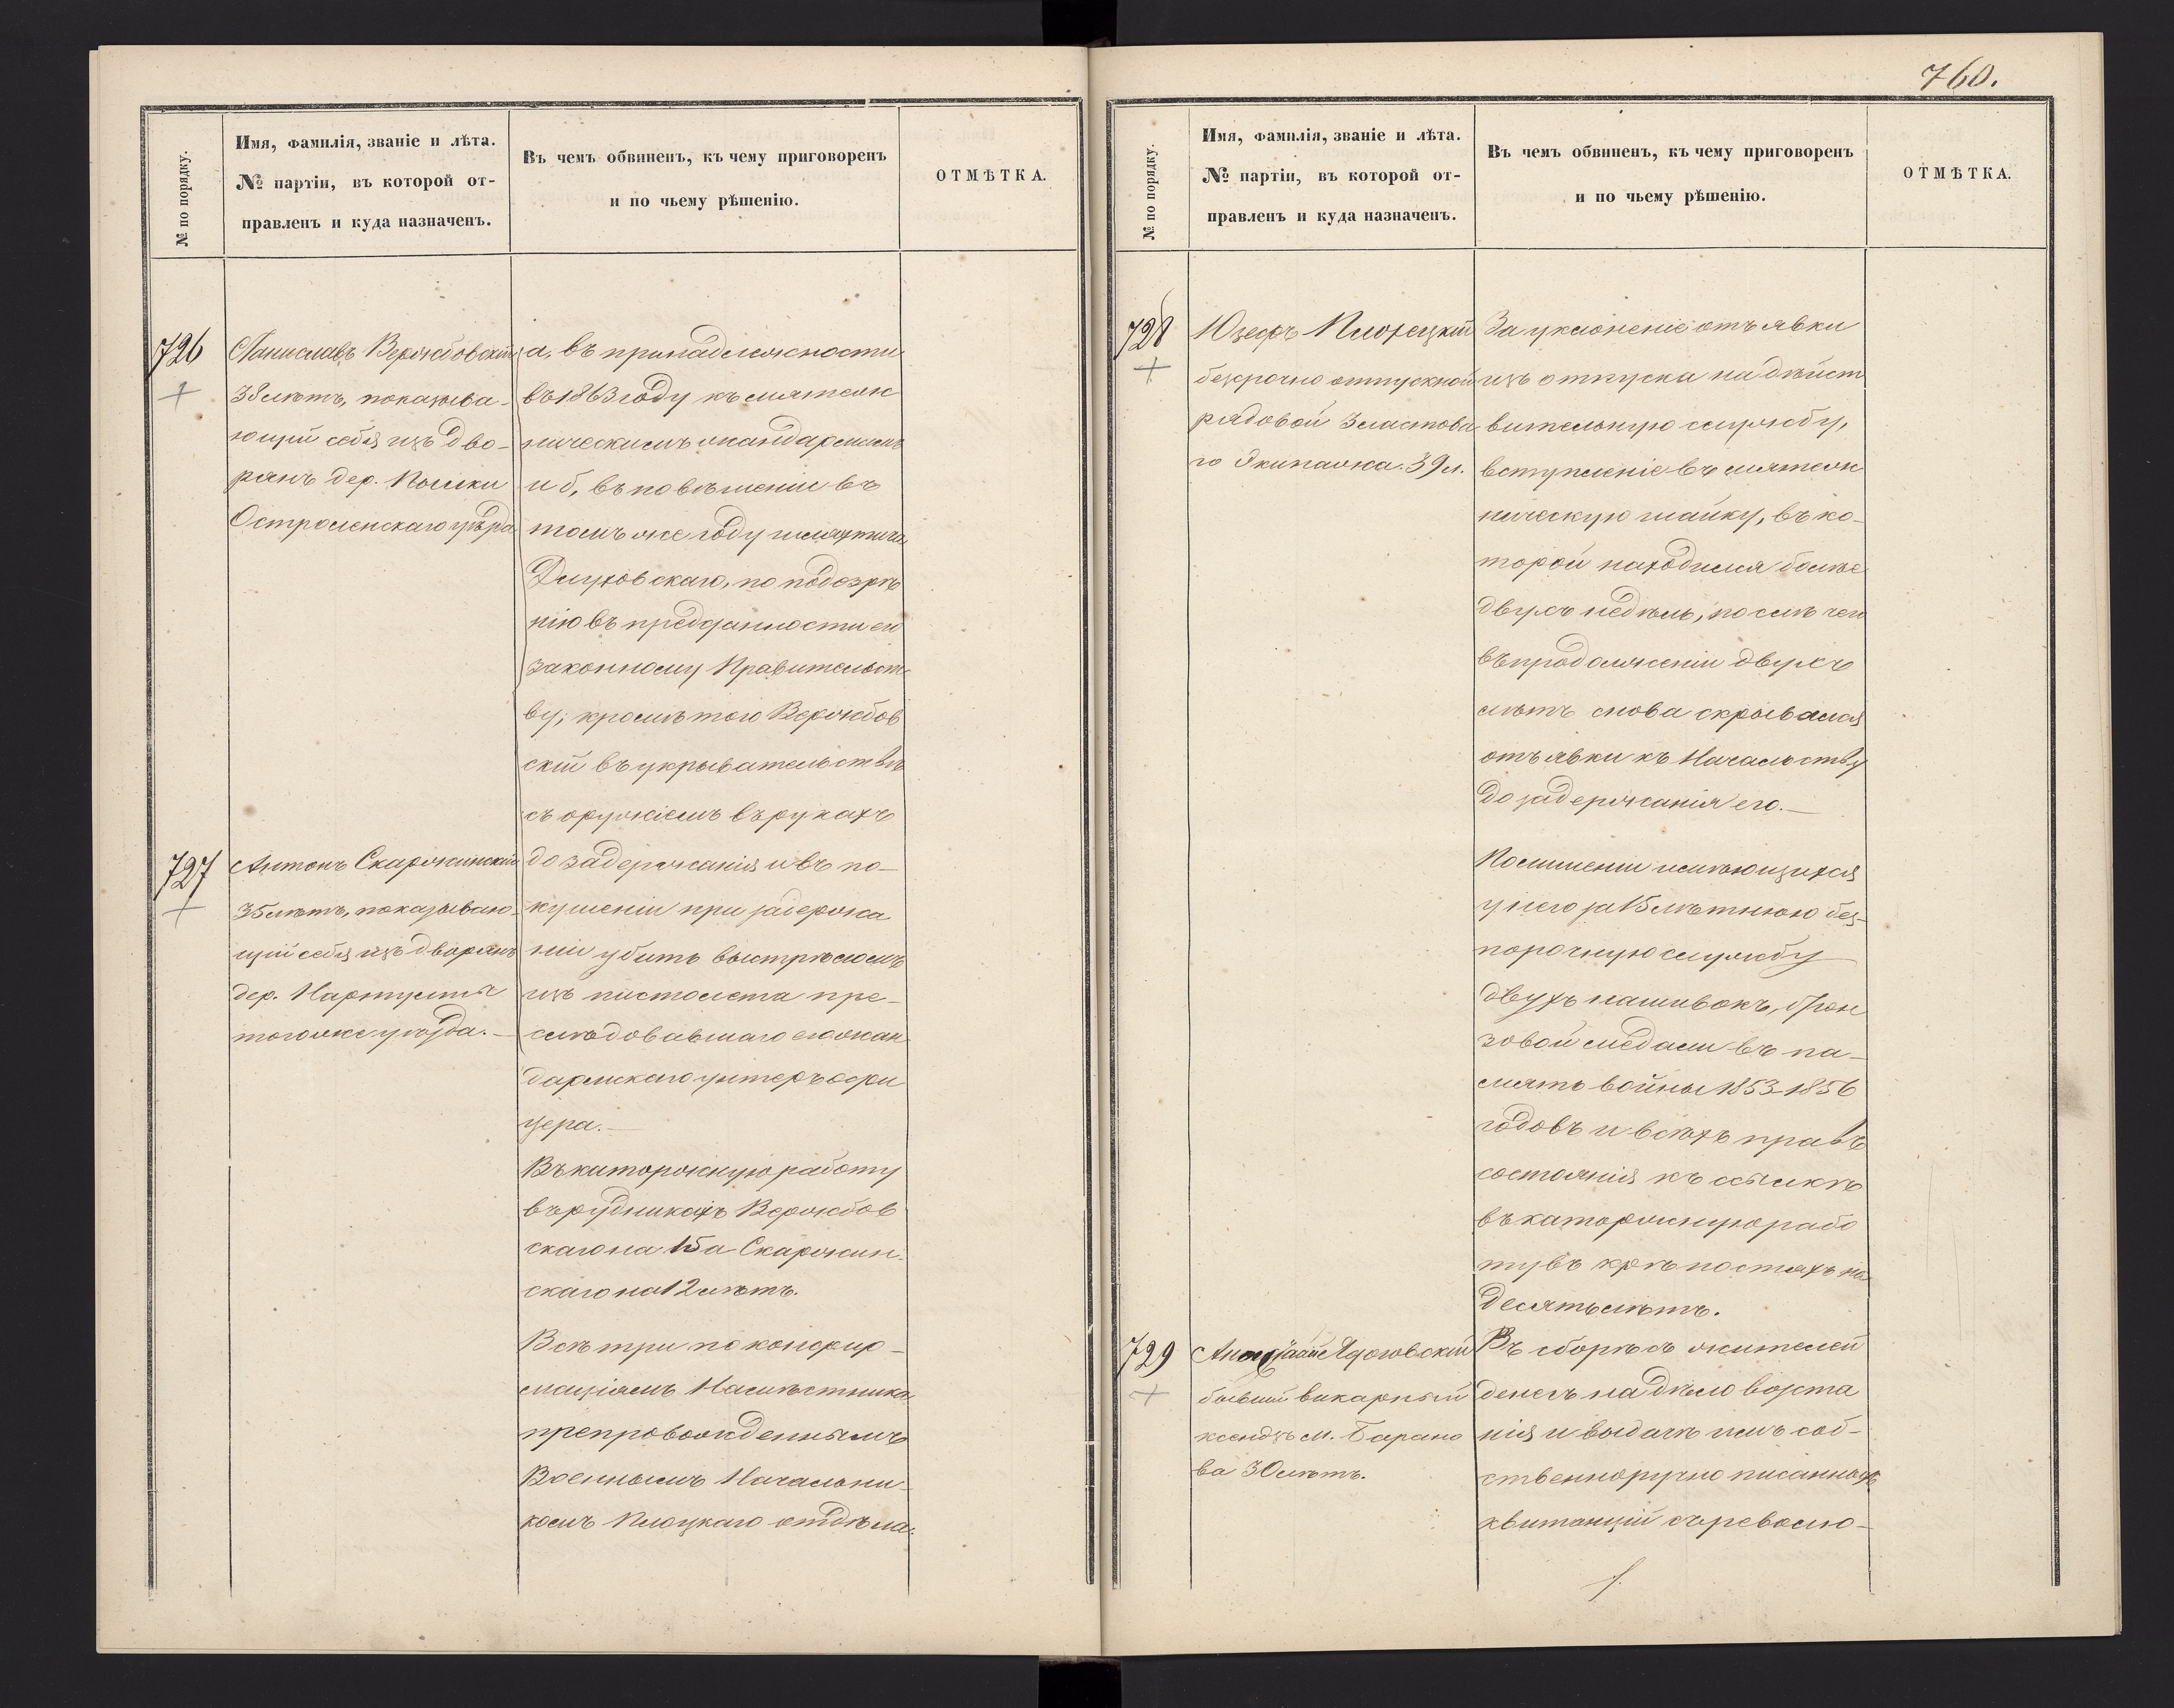 760.
№ по порядку.
Имя, фамилія, званіе и лѣта.
№ партіи, въ которой от-
правленъ и куда назначенъ.
Въ чемъ обвиненъ, къ чему приговоренъ
и по чьему рѣшенію.
ОТМѢТКА.
726
Станиславъ Вержбовскій
38 лѣтъ, показыва-
ющій себя изъ дво-
рянъ дер.
Остроленскаго уѣзда
727
Антонъ Скаржинскій
35 лѣтъ, показываю-
щій себя изъ дворянъ
дер.
тогоже уѣзда.—
а, въ принадлежности
въ 1863 году къ мятеж
ническимъ жандармамъ
и б, въ повѣшеніи въ
томъ же году шляхтича
Длуховскаго, по подозрѣ
нію въ преданности его
законному Правительст-
ву; кромѣ того Вержбов
скій въ укрывательствѣ
съ оружіемъ въ рукахъ
до задержанія и въ по-
кушеніи при задержа
ніи убить выстрѣломъ
изъ пистолета пре-
слѣдовавшаго его жан-
дармскаго унтеръ офи
цера.—
Въ каторжную работу
въ рудникахъ Вержбов
скаго на 15 а Скаржин-
скаго на 12 лѣтъ.
Всѣ три по конфир-
маціямъ Намѣстника
препровожденнымъ
Военнымъ Начальни-
комъ Плоцкаго отдѣла.
№ по порядку.
Имя, фамилія, званіе и лѣта.
№ партіи, въ которой от-
правленъ и куда назначенъ.
Въ чемъ обвиненъ, къ чему приговоренъ
и по чьему рѣшенію.
ОТМѢТКА.
728
Юзефъ
безсрочно отпускной
рядовой Эластова
го Экипажа. 39 л.
За уклоненіе отъ явки
изъ отпуска на дѣйст
вительную службу,
вступленіе въ мятеж
ническую шайку, въ ко-
торой находился болѣе
двухъ недѣль, послѣ чего
въ продолженіи двухъ
лѣтъ снова скрывался
отъ явки къ Начальству
до задержанія его.—
По лишеніи имѣющихся
у него за 15 лѣтнюю без-
порочную службу
двухъ нашивокъ, брон
зовой медали въ па-
мять войны 1853-1856
годовъ и всѣхъ правъ
состоянія къ ссылкѣ
въ каторжную рабо
ту въ крѣпостяхъ на
десять лѣтъ.
729
бывшій викарный
ксендзъ м. Барано
ва 30 лѣтъ.
Въ сборѣ съ жителей
денегъ на дѣло возста
нія и выдачѣ имъ соб-
ственноручно писанныхъ
квитанцій съ револю-